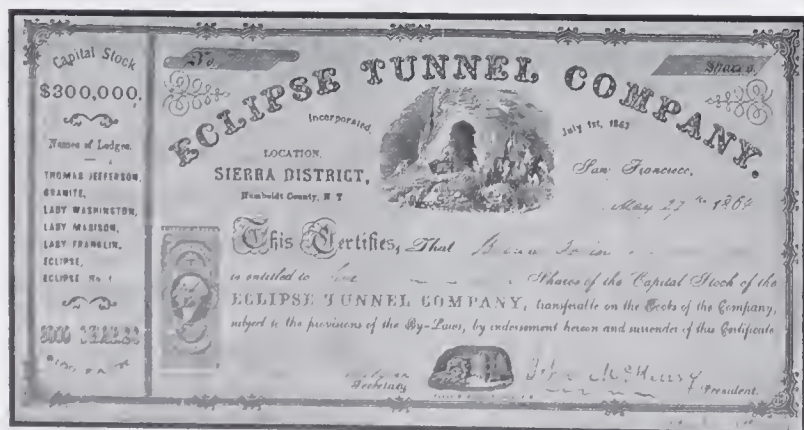 Capital Stock
$300,000.
Names of Ledges.
THOMAS JEFFERSON,
GRANITE,
LADY WASHINGTON,
LADY MADISON,
LADY FRANKLIN,
ECLIPSE,
ECLIPSE No 1
3000 SHARES
No.
Shares.
ECLIPSE TUNNEL COMPANY.
Incorporated,
July 1st, 1863
LOCATION,
SIERRA DISTRICT,
Humboldt County, N T
San Francisco,
May 27th 1864
This Certifies, That
is entitled to Shares of the Capital Stock of the
ECLIPSE TUNNEL COMPANY, transferable on the Books of the Company,
subject to the provisions of the By-Laws, by indorsement hereon and surrender of this Certificate
Secretary
John
President.